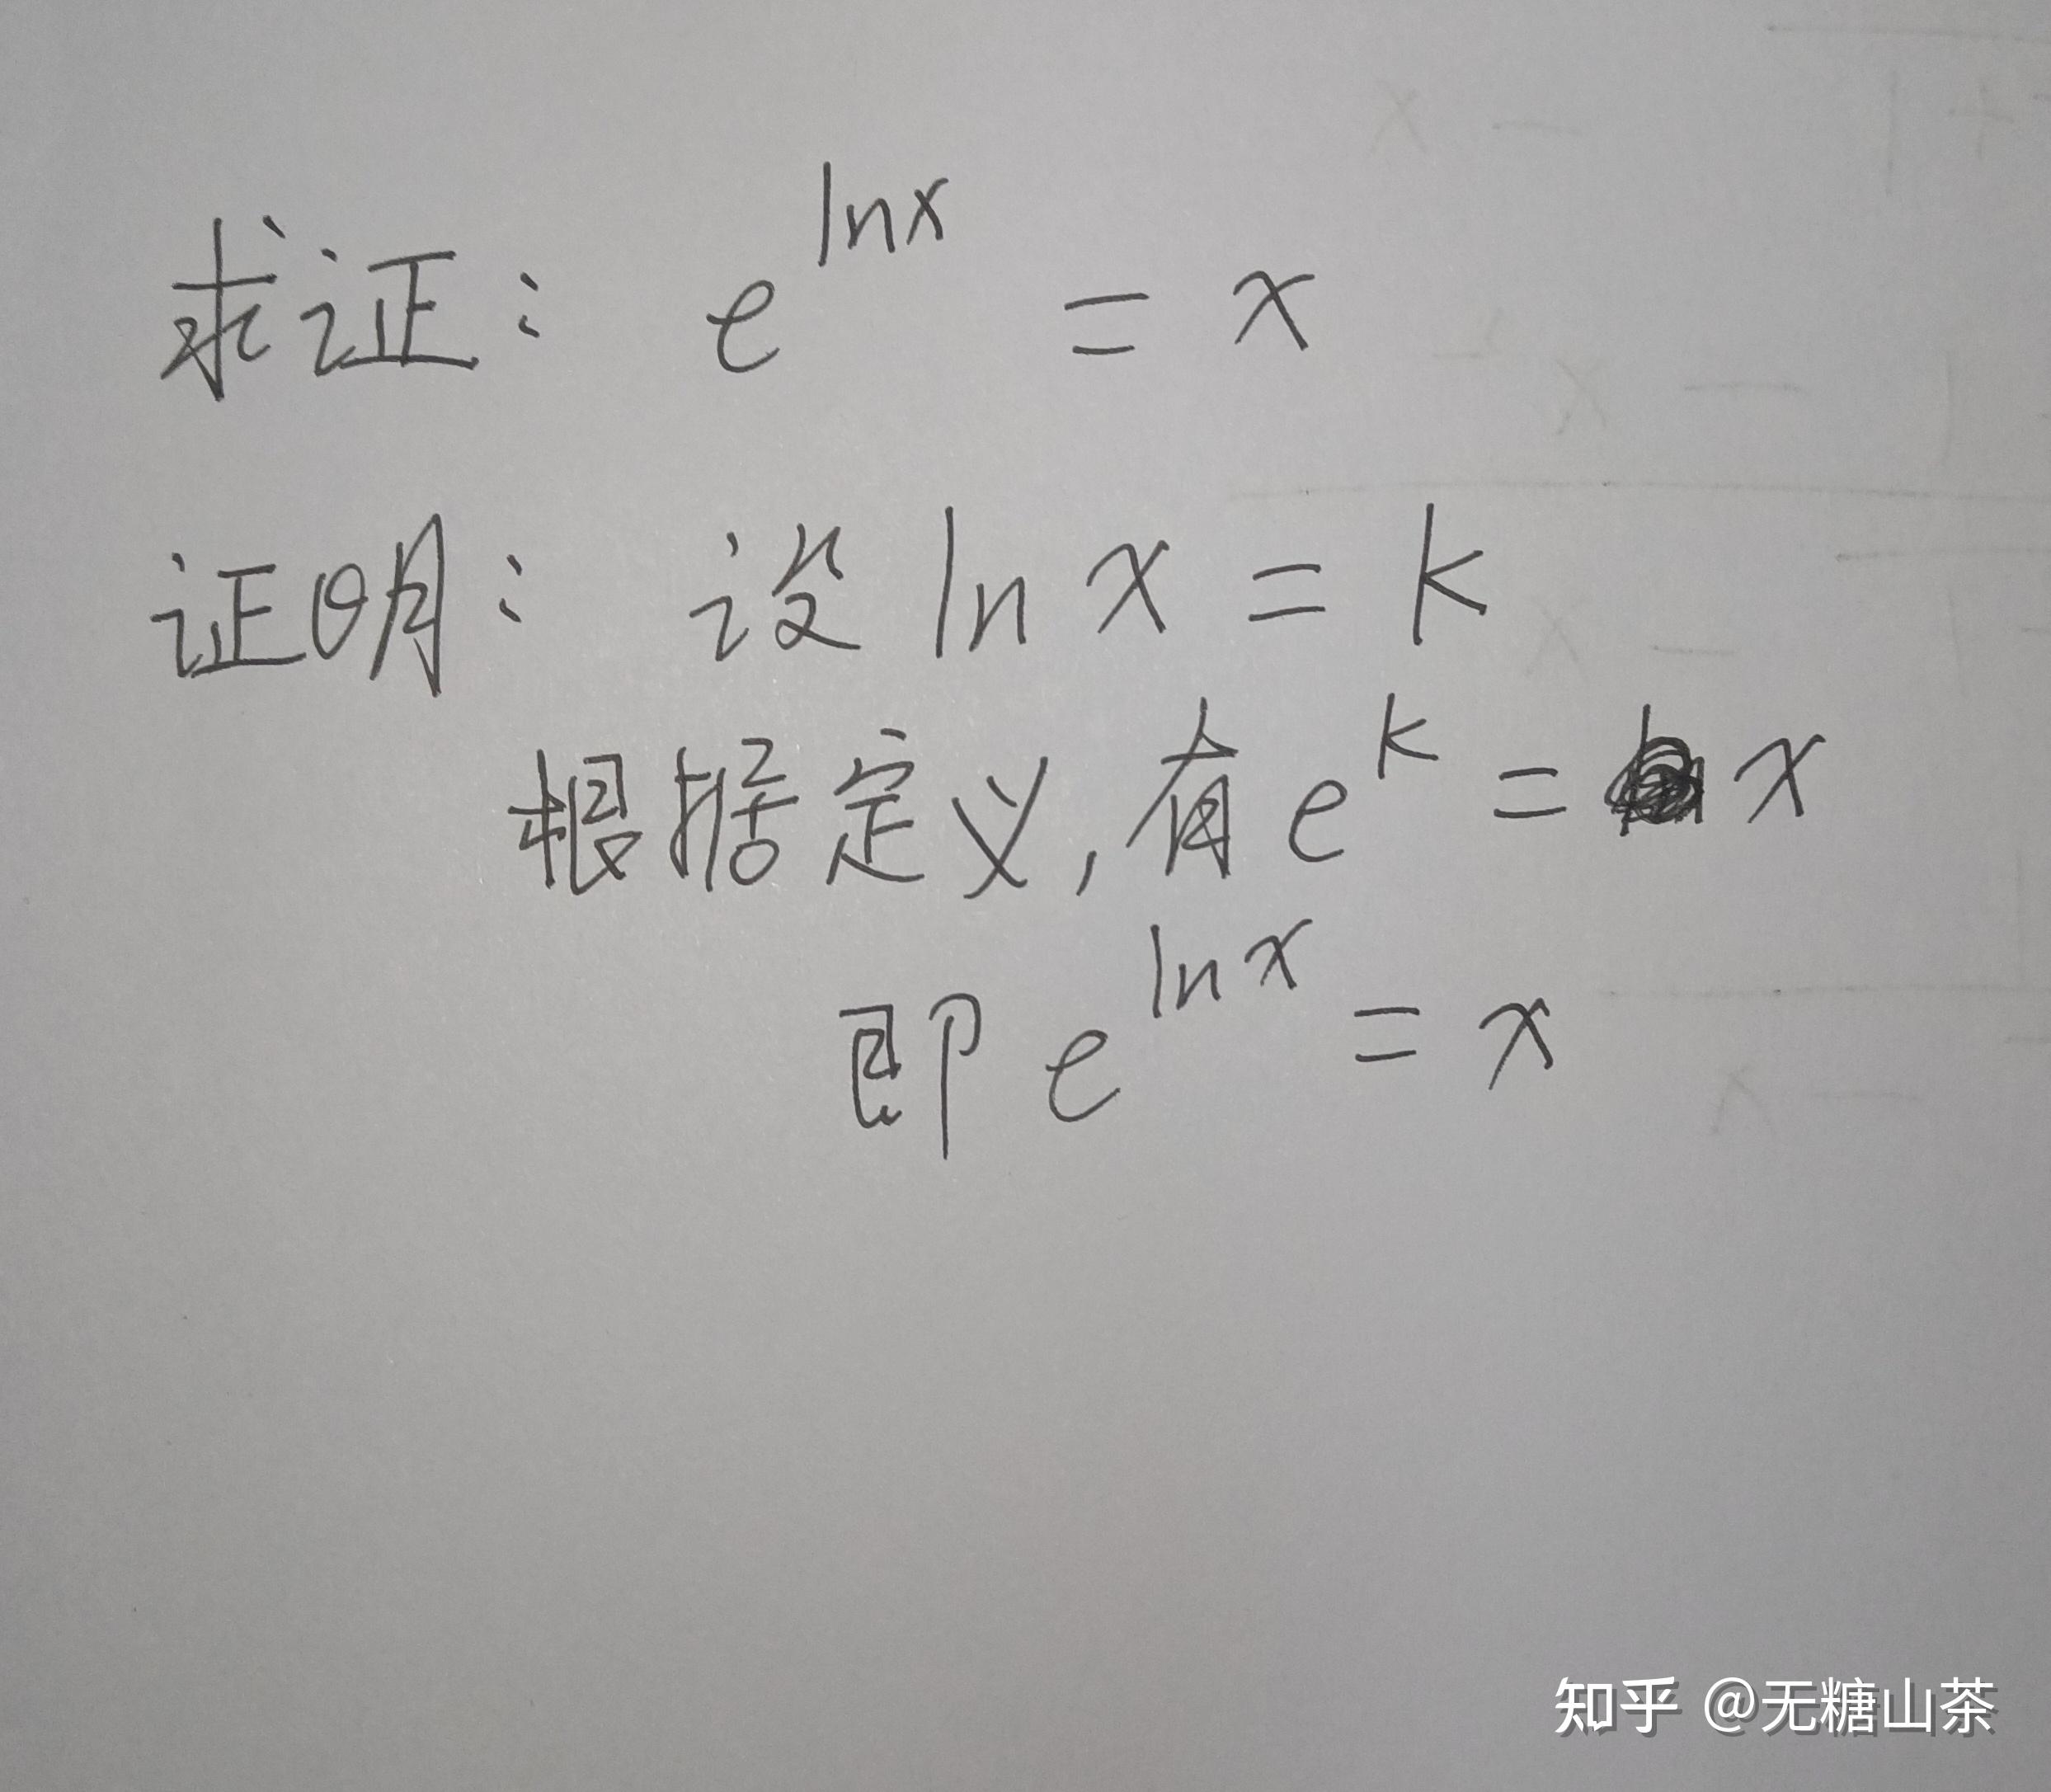 求证： e^{lnx} = x
证明： 设 ln x = k
根据定义，有 e^k = x
即 e^{ln x} = x
知乎 @无糖山茶